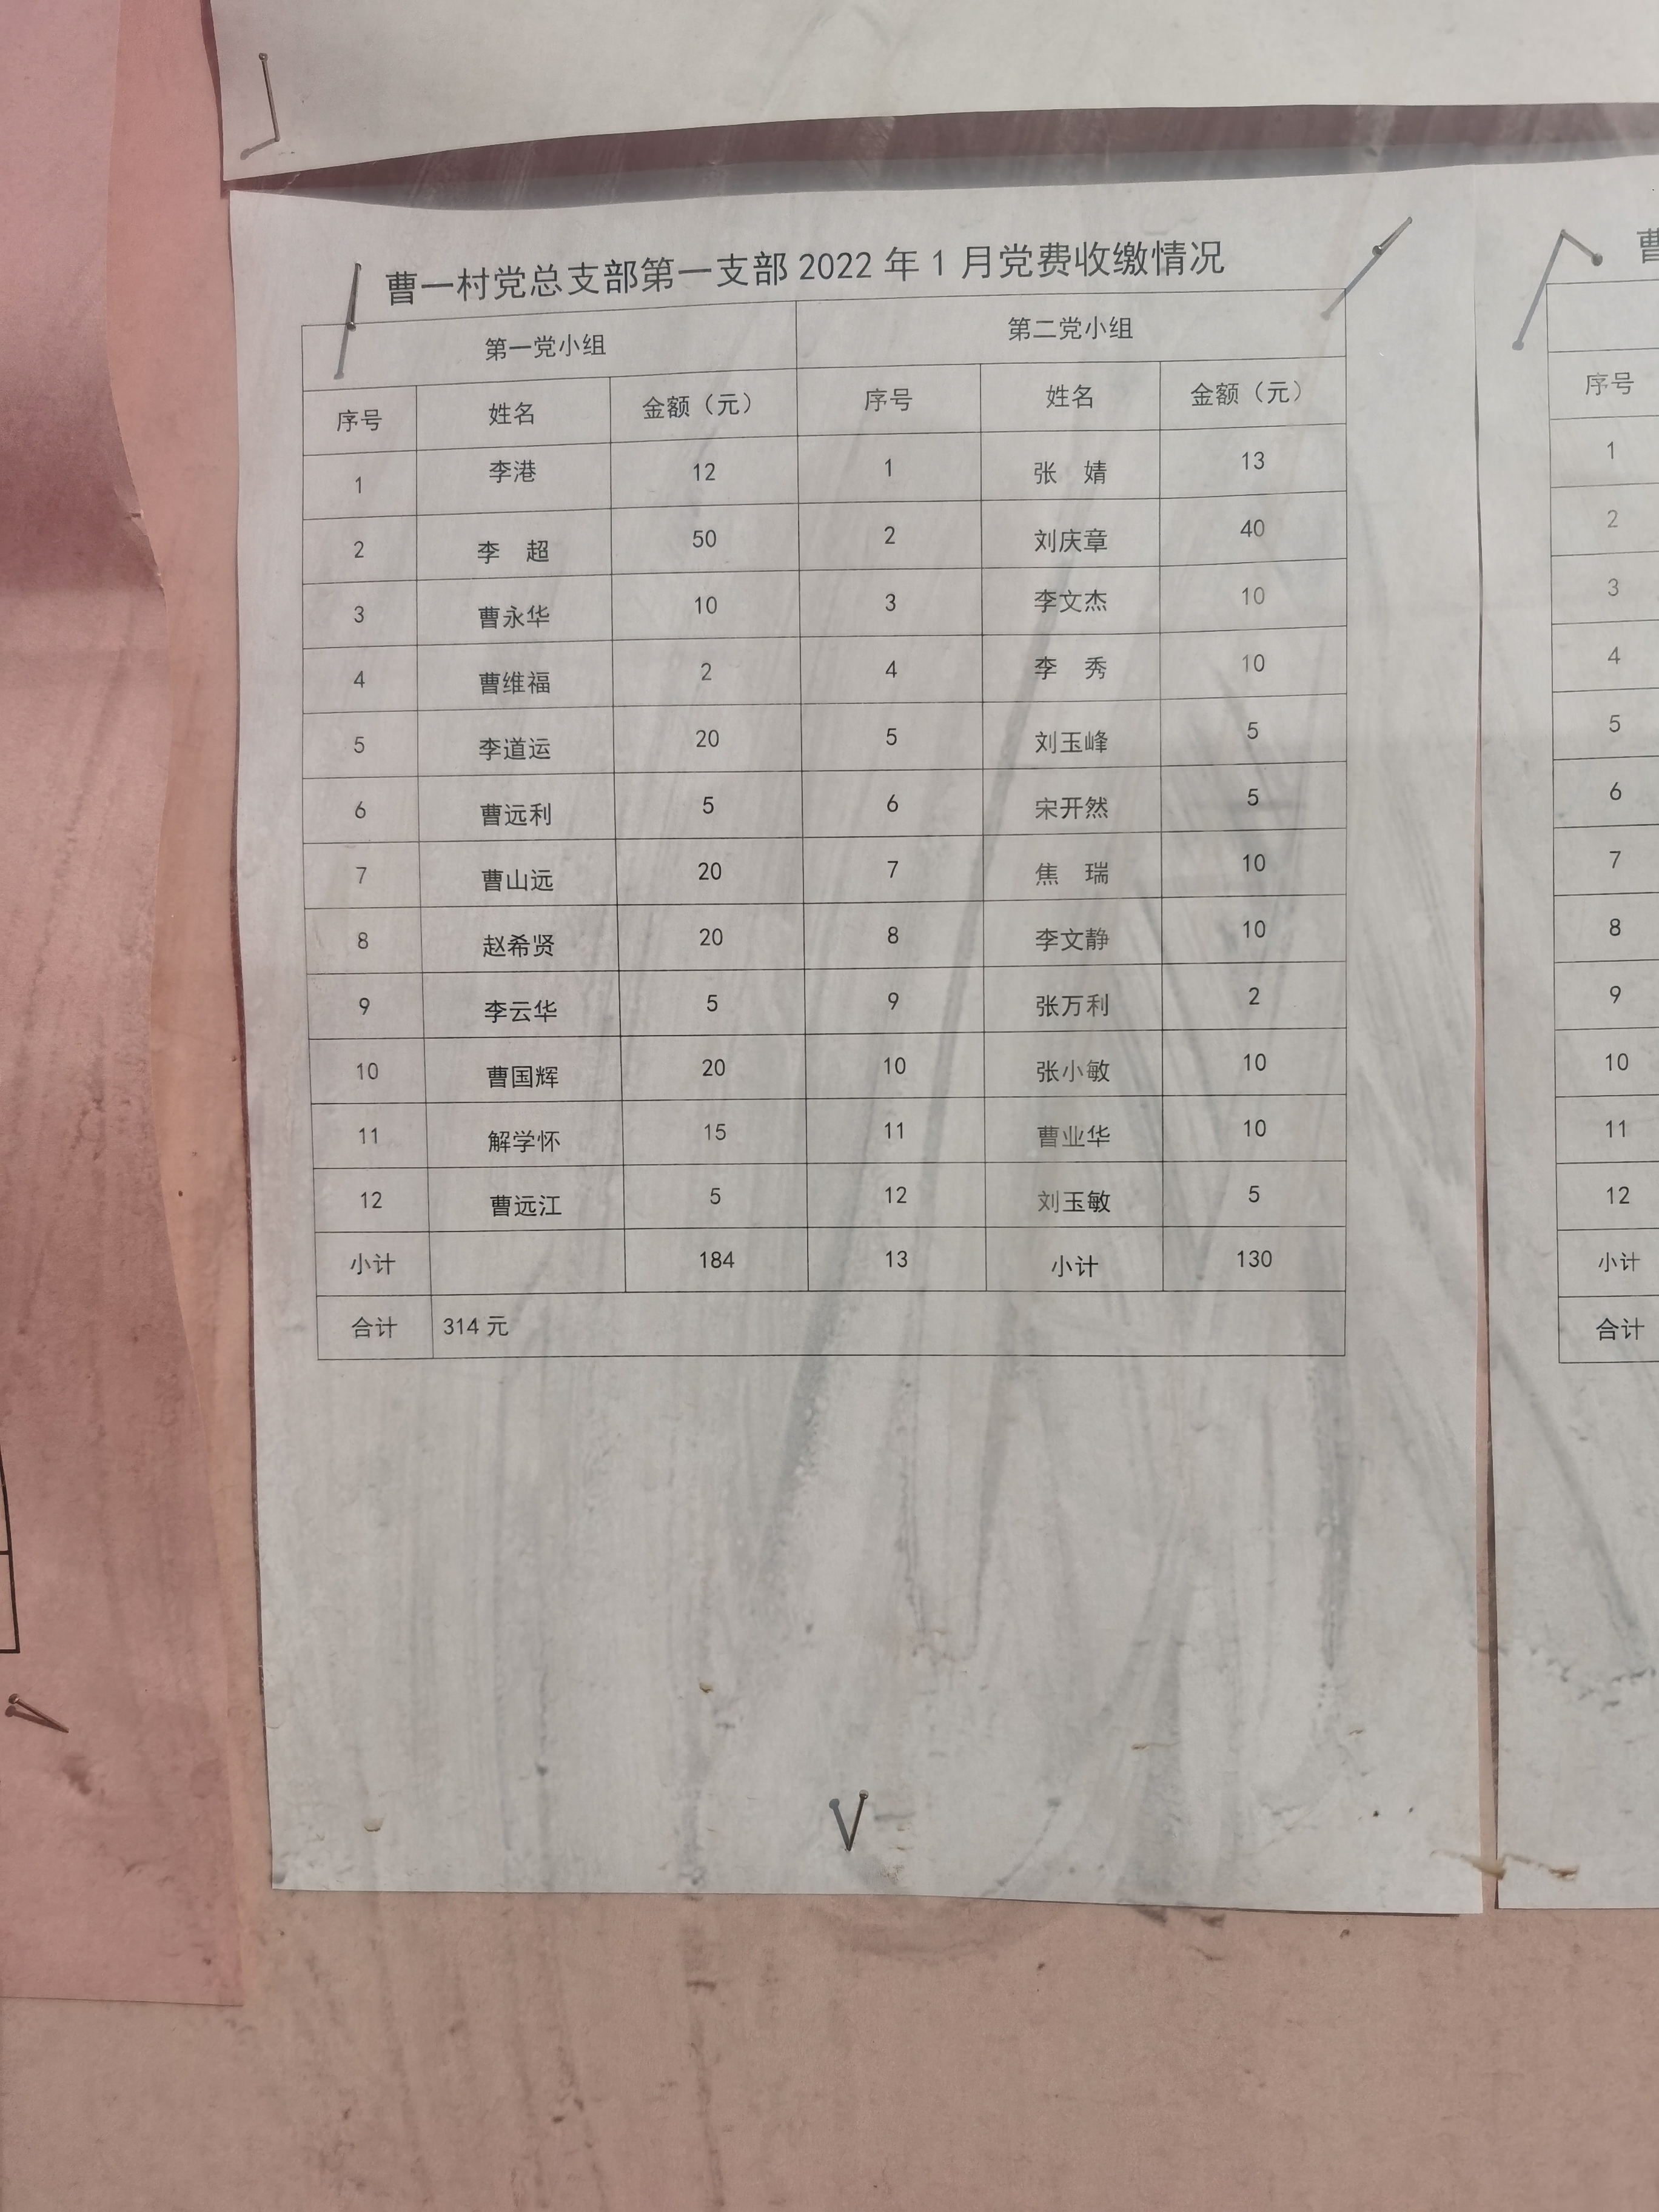 曹一村党总支部第一支部2022年1月党费收缴情况
第一党小组 第二党小组
序号 姓名 金额（元） 序号 姓名 金额（元）
1 李港 12 1 张 婧 13
2 李 超 50 2 刘庆章 40
3 曹永华 10 3 李文杰 10
4 曹维福 2 4 李 秀 10
5 李道运 20 5 刘玉峰 5
6 曹远利 5 6 宋开然 5
7 曹山远 20 7 焦 瑞 10
8 赵希贤 20 8 李文静 10
9 李云华 5 9 张万利 2
10 曹国辉 20 10 张小敏 10
11 解学怀 15 11 曹业华 10
12 曹远江 5 12 刘玉敏 5
小计 184 13 小计 130
合计 314元
曹
序号
1
2
3
4
5
6
7
8
9
10
11
12
小计
合计